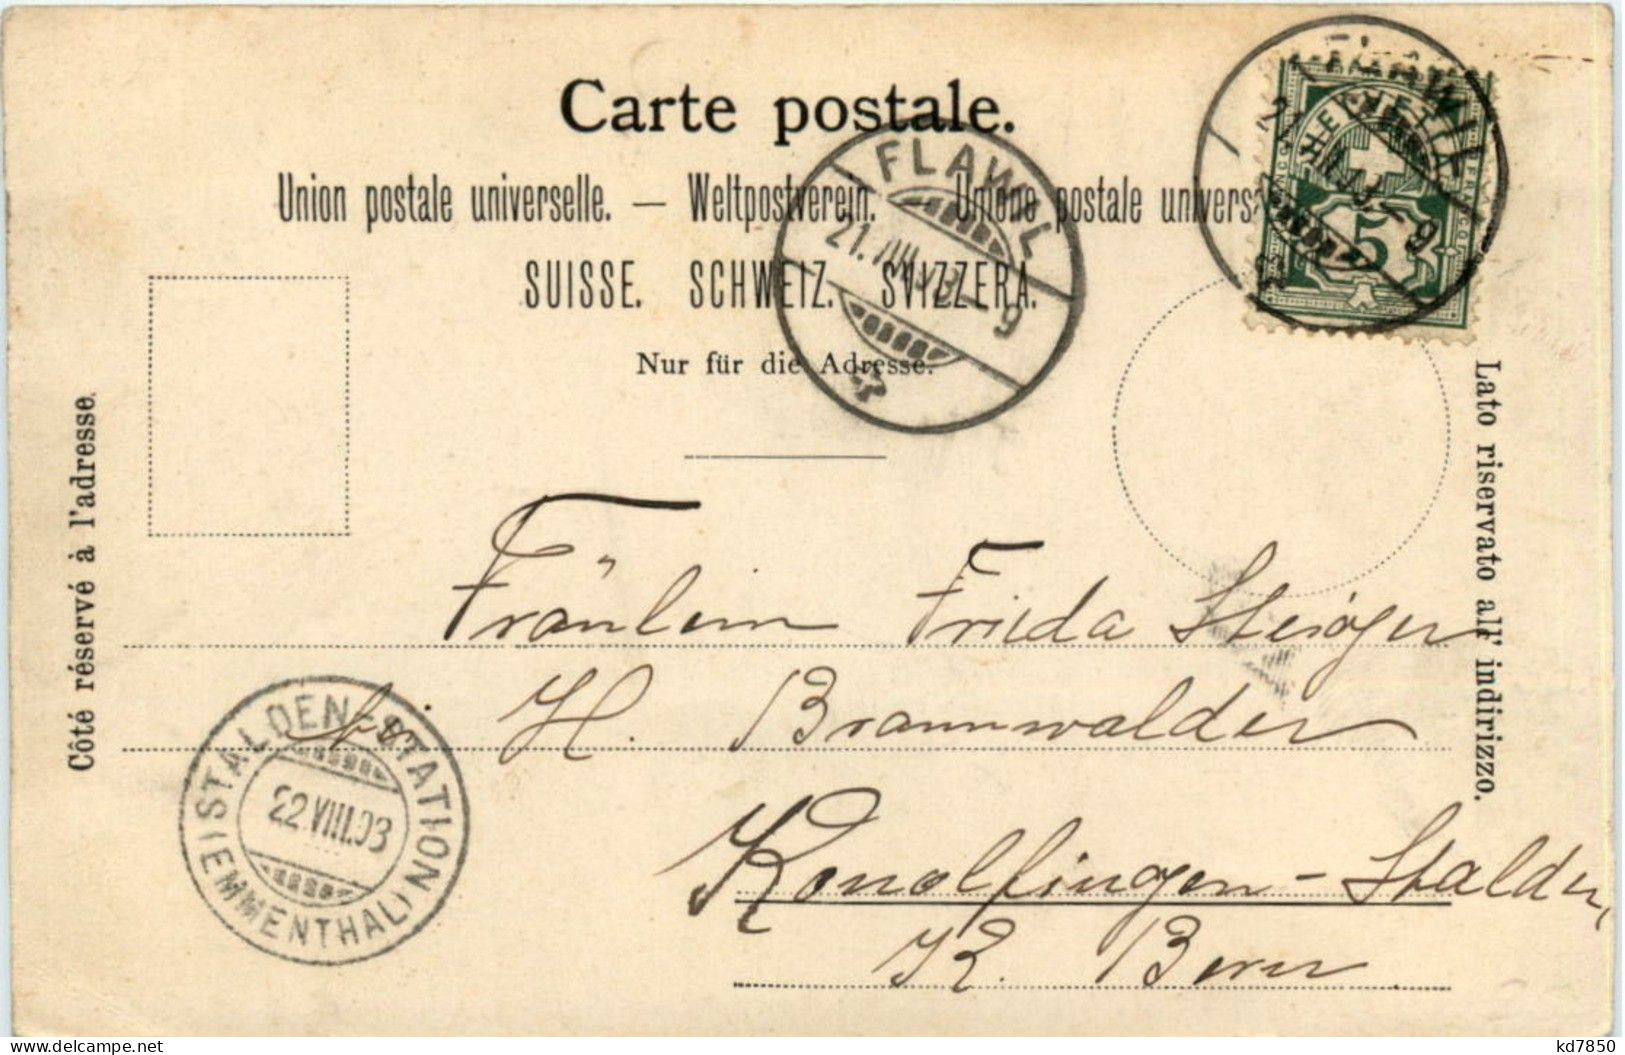 Carte postale.
Union postale universelle. — Weltpostverein. Unione postale univers
SUISSE. SCHWEIZ. SVIZZERA.
Nur für die Adresse.
FLAWIL
21.VIII.03-9
FLAWIL
21.VIII.03-9
HELVETIA
5
Côté réservé à l'adresse.
Lato riservato all' indirizzo.
Fräulein Frieda Steiger
bei H. Braunwalder
Konolfingen-Stalden,
K. Bern
STALDEN-STATION
22.VIII.03
(EMMENTHAL)
delcampe.net
kd7850